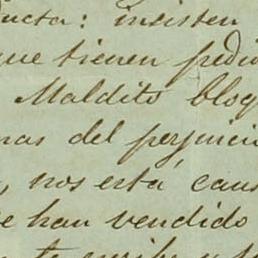 ucta: insisten
que tienen pedi
Maldito bloq
mas del perjuici
, nos está caus
e han vendido
te escribe y